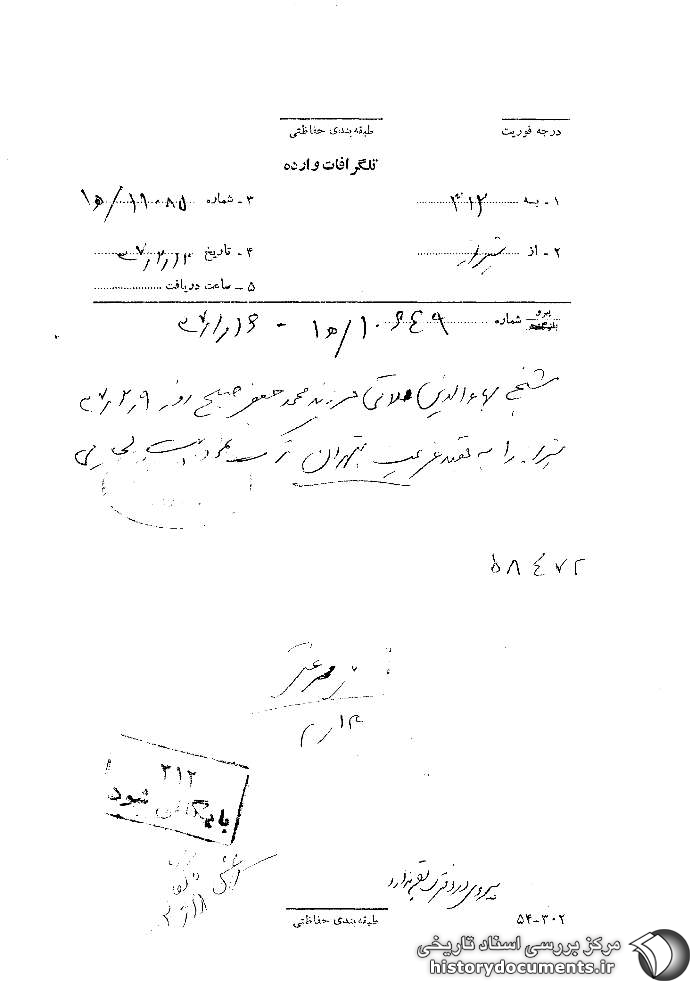 درجه فوریت
طبقه‌بندی حفاظتی
تلگرافات وارده
۱ - به ۳۱۲
۳ - شماره ۱۵/۱۱۰۸۵
۲ - از شیراز
۴ - تاریخ ۳۷/۲/۱۳
۵ - ساعت دریافت
پیرو شماره ۱۵/۱۰۶۴۹ - ۳۷/۱/۱۶
شیخ بهاءالدین محلاتی فرزند محمد جعفر صبح روز ۳۷/۲/۹
شیراز را به قصد عزیمت بتهران ترک
۵۸۴۷۲
۲/۱۴
۳۱۲
بایگانی شود
۵۴-۳۰۲
طبقه‌بندی حفاظتی
مرکز بررسی اسناد تاریخی
historydocuments.ir